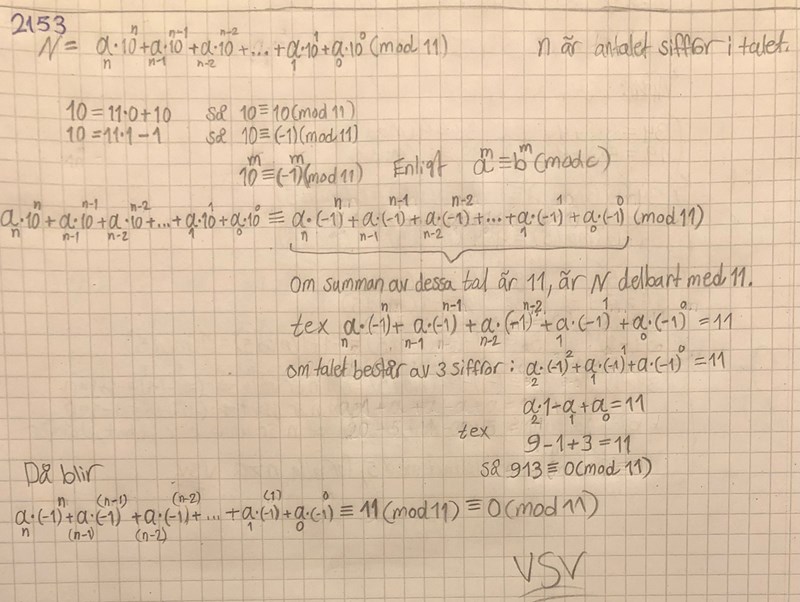 2153
N = aₙ·10ⁿ + aₙ₋₁·10ⁿ⁻¹ + aₙ₋₂·10ⁿ⁻² + ... + a₁·10¹ + a₀·10⁰ (mod 11) n är antalet siffror i talet.
10 = 11·0 + 10 så 10 ≡ 10 (mod 11)
10 = 11·1 − 1 så 10 ≡ (-1) (mod 11)
10ᵐ ≡ (-1)ᵐ (mod 11) Enligt aᵐ ≡ bᵐ (mod c)
aₙ·10ⁿ + aₙ₋₁·10ⁿ⁻¹ + aₙ₋₂·10ⁿ⁻² + ... + a₁·10¹ + a₀·10⁰ ≡ aₙ·(-1)ⁿ + aₙ₋₁·(-1)ⁿ⁻¹ + aₙ₋₂·(-1)ⁿ⁻² + ... + a₁·(-1)¹ + a₀·(-1)⁰ (mod 11)
Om summan av dessa tal är 11, är N delbart med 11.
tex aₙ·(-1)ⁿ + aₙ₋₁·(-1)ⁿ⁻¹ + aₙ₋₂·(-1)ⁿ⁻² + a₁·(-1)¹ + a₀·(-1)⁰ = 11
om talet består av 3 siffror: a₂·(-1)² + a₁·(-1)¹ + a·(-1)⁰ = 11
a₂·1 − a₁ + a₀ = 11
tex 9 − 1 + 3 = 11
så 913 ≡ 0 (mod 11)
Då blir
aₙ·(-1)ⁿ + a₍ₙ₋₁₎·(-1)⁽ⁿ⁻¹⁾ + a₍ₙ₋₂₎·(-1)⁽ⁿ⁻²⁾ + ... + a₁·(-1)⁽¹⁾ + a₀·(-1)⁰ ≡ 11 (mod 11) ≡ 0 (mod 11)
VSV